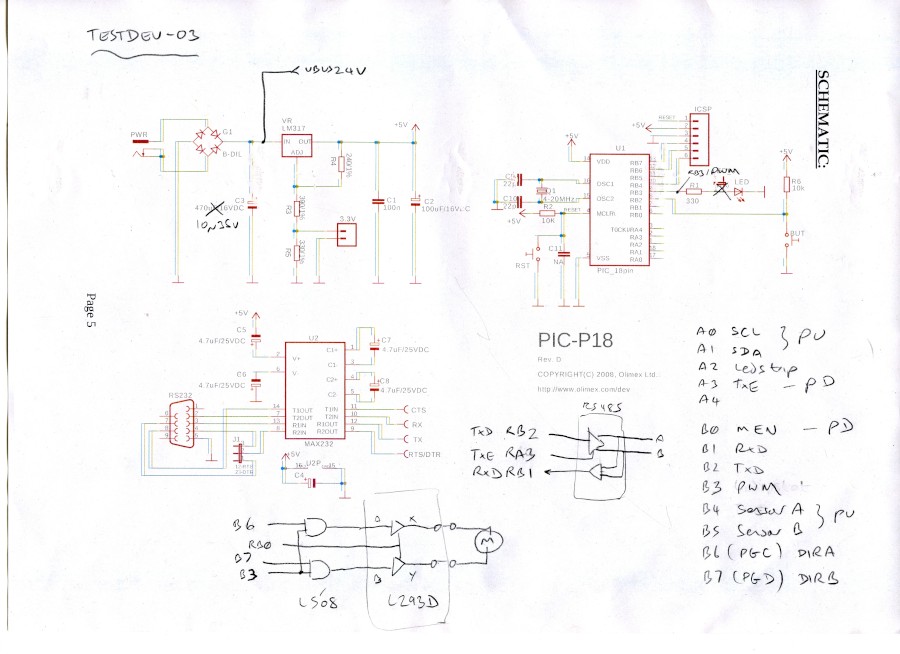 TESTDEV-03
VBUS24V
SCHEMATIC:
Page 5
PWR
G1
B-DIL
VR
LM317
IN
OUT
ADJ
+5V
240/1%
R4
R3
R5
C3
470u/16VDC
10n35V
3.3V
C1
100n
C2
100uF/16VDC
ICSP
RESET
+5V
+5V
U1
VDD
OSC1
OSC2
MCLR
VSS
RB7
RB6
RB5
RB4
RB3
RB2
RB1
RB0
T0CKI/RA4
RA3
RA2
RA1
RA0
PIC_18pin
22p
Q1
4-20MHz
R2
10k
RESET
+5V
C11
NA
RST
RB3/PWM
R1
330
LED
+5V
R6
10k
BUT
+5V
C5
4.7uF/25VDC
C6
4.7uF/25VDC
U2
V+
C1+
C1-
C2+
C2-
T1OUT
T2OUT
R1IN
R2IN
T1IN
T2IN
R1OUT
R2OUT
MAX232
C7
4.7uF/25VDC
C8
4.7uF/25VDC
14
7
13
8
11
10
12
9
CTS
RX
TX
RTS/DTR
RS232
J1
+5V
U2P
C4
16
15
PIC-P18
Rev. D
COPYRIGHT(C) 2008, Olimex Ltd..
http://www.olimex.com/dev
RS485
TxD RB2
TxE RA3
RxD RB1
A
B
A0 SCL } PU
A1 SDA
A2 Ledstrip
A3 TxE - PD
A4
B0 MEN - PD
B1 RxD
B2 TxD
B3 PWM
B4 Sensor A } PU
B5 Sensor B
B6 (PGC) DIRA
B7 (PGD) DIRB
B6
RB0
B7
B3
X
Y
M
LS'08
L293D